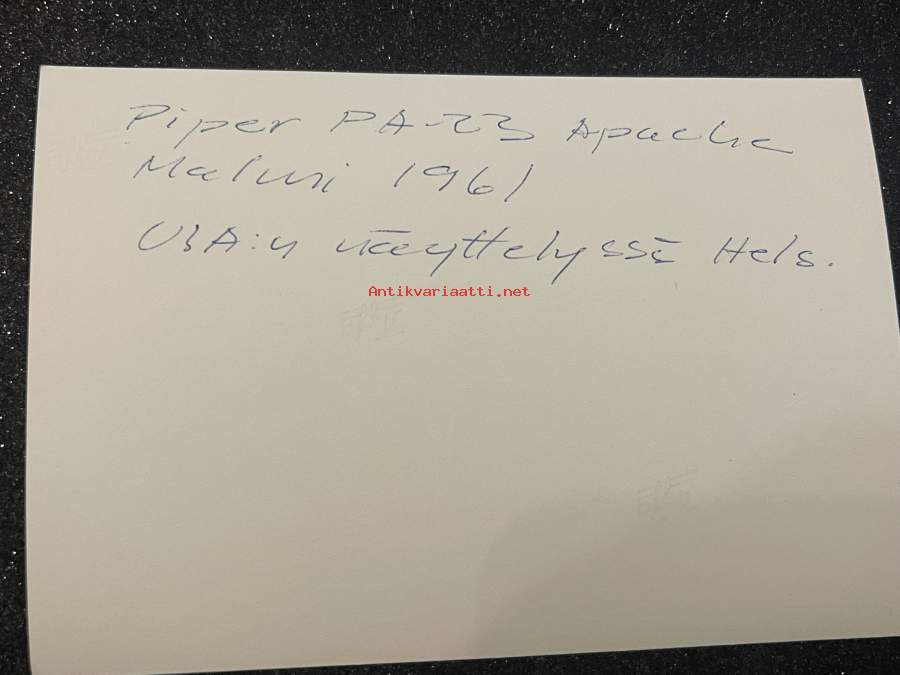 Piper PA-23 Apache
Malmi 1961
USA:n näyttelyssä Hels.
Antikvariaatti.net